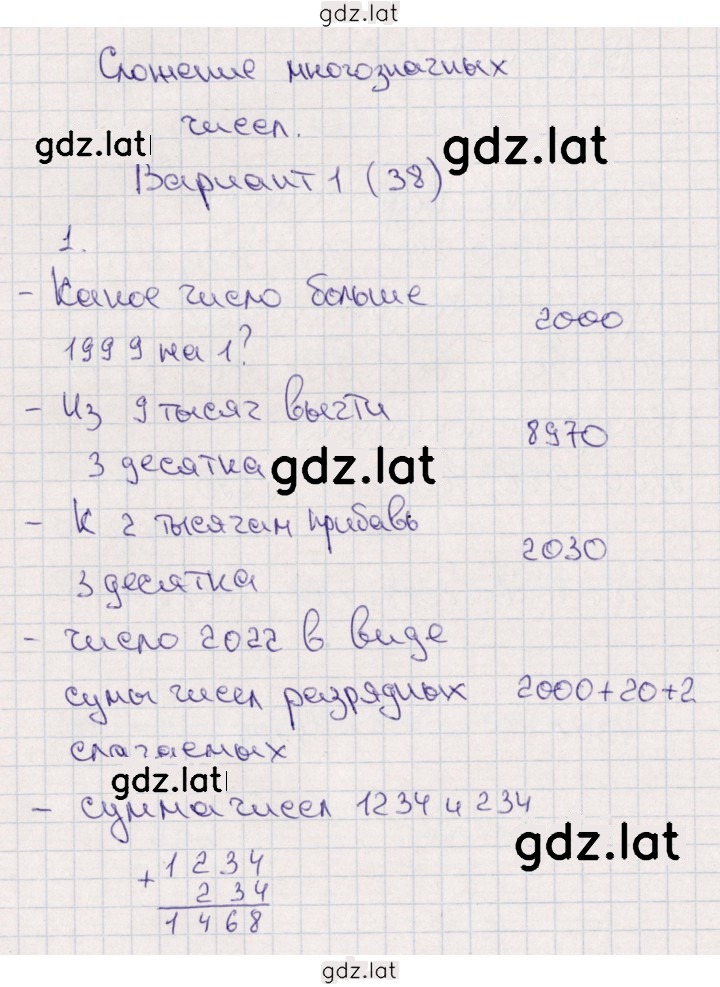 gdz.lat
Сложение многозначных
чисел.
gdz.lat gdz.lat
Вариант 1 (38)
1.
- Какое число больше
1999 на 1? 2000
- Из 9 тысяч вычти
3 десятка 8970
gdz.lat
- К 2 тысячам прибавь
3 десятка 2030
- число 2022 в виде
сумы чисел разрядных 2000+20+2
слагаемых
gdz.lat
- сумма чисел 1234 и 234
gdz.lat
+ 1234
234
1468
gdz.lat